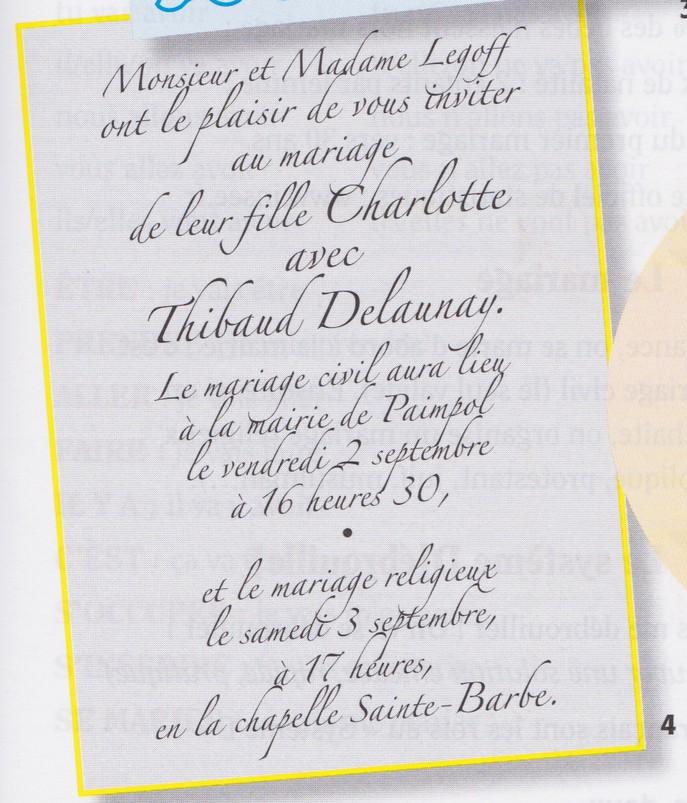 Monsieur et Madame Legoff
ont le plaisir de vous inviter
au mariage
de leur fille Charlotte
avec
Thibaud Delaunay.
Le mariage civil aura lieu
à la mairie de Paimpol
le vendredi 2 septembre
à 16 heures 30,
•
et le mariage religieux
le samedi 3 septembre,
à 17 heures,
en la chapelle Sainte-Barbe.
4